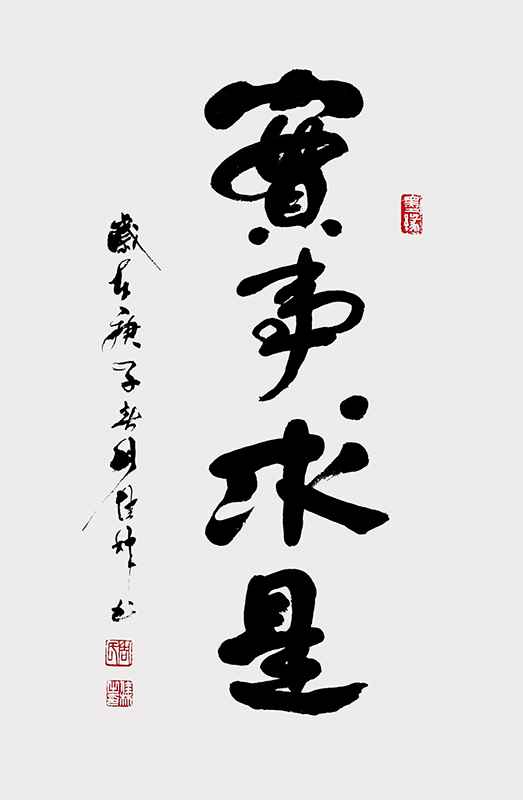 實事求是
歲在庚子春月
書